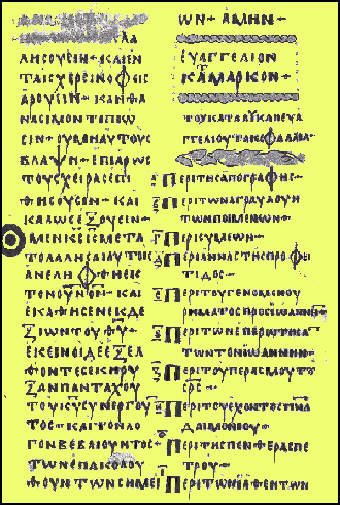 ΛΑ
ΛΗСΟΥСΙΝ· ΚΑΙΕΝ
ΤΑΙСΧΕΡСΙΝΟΦΕΙС
ΑΡΟΥСΙΝ· ΚΑΝΘΑ
ΝΑСΙΜΟΝΤΙΠΙΩ
СΙΝ· ΟΥΜΗΑΥΤΟΥС
ΒΛΑΨΗ· ΕΠΙΑΡΩС
ΤΟΥСΧΕΙΡΑСΕΠΙ
ΘΗСΟΥСΙΝ· ΚΑΙ
ΚΑΛΩСΕΞΟΥСΙΝ·
ΜΕΝΚ̅С̅ΜΕΤΑ
ΤΟΛΑΛΗСΑΙΑΥΤΟΙС
ΑΝΕΛΗΦΘΗΕΙС
ΤΟΝΟΥ̅Ν̅Ο̅Ν̅· ΚΑΙ
ΕΚΑΘΙСΕΝΕΚΔΕ
ΞΙΩΝΤΟΥΘ̅Υ̅·
ΕΚΕΙΝΟΙΔΕΕΞΕΛ
ΘΟΝΤΕСΕΚΗΡΥ
ΞΑΝΠΑΝΤΑΧΟΥ
ΤΟΥΚ̅Υ̅СΥΝΕΡΓΟΥ
ΤΟС· ΚΑΙΤΟΝΛΟ
ΓΟΝΒΕΒΑΙΟΥΝΤΟС·
ΤΩΝΕΠΑΚΟΛΟΥ
ΘΟΥΝΤΩΝСΗΜΕΙ
ΩΝ· ΑΜΗΝ·
ΕΥΑΓΓΕΛΙΟΝ
ΚΑΤΑΜΑΡΚΟΝ·
ΤΟΥΚΑΤΑΛΟΥΚΑΝΕΥΑ
ΓΓΕΛΙΟΥ
ΠΕΡΙΤΗСΑΠΟΓΡΑΦΗС·
ΠΕΡΙΤΩΝΑΓΡΑΥΛΟΥΝ
ΤΩΝΠΟΙΜΕΝΩΝ·
ΠΕΡΙСΥΜΕΩΝ·
ΠΕΡΙΑΝΝΑСΤΗСΠΡΟΦΗ
ΤΙΔΟС·
ΠΕΡΙΤΟΥΓΕΝΟΜΕΝΟΥ
ΡΗΜΑΤΟСΠΡΟСΙΩΑΝΝΗ̅
ΠΕΡΙΤΩΝΕΠΕΡΩΤΗСΑ
ΤΩΝΤΟΝΙΩΑΝΝΗΝ·
ΠΕΡΙΤΟΥΠΕΙΡΑСΜΟΥΤΟΥ
С̅Ρ̅С̅·
ΠΕΡΙΤΟΥΕΧΟΝΤΟСΠ̅Ν̅Α̅
ΔΑΙΜΟΝΙΟΥ·
ΠΕΡΙΤΗСΠΕΝΘΕΡΑСΠΕ
ΤΡΟΥ·
ΠΕΡΙΤΩΝΙΑΘΕΝΤΩΝ